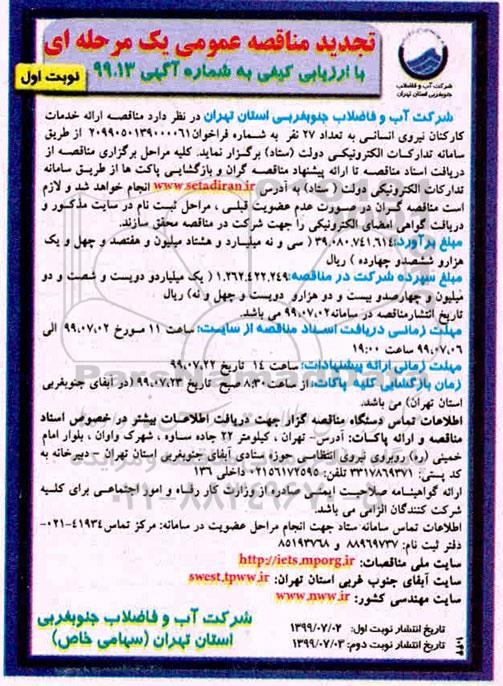 تجدید مناقصه عمومی یک مرحله ای
با ارزیابی کیفی به شماره آگهی ۹۹.۱۳
نوبت اول
شرکت آب و فاضلاب
جنوبغربی استان تهران
شرکت آب و فاضلاب جنوبغربی استان تهران در نظر دارد مناقصه ارائه خدمات
کارکنان نیروی انسانی به تعداد ۲۷ نفر به شماره فراخوان ۲۰۹۹۰۵۰۱۳۹۰۰۰۰۶۱ از طریق
سامانه تدارکات الکترونیکی دولت (ستاد) برگزار نماید. کلیه مراحل برگزاری مناقصه از
دریافت اسناد مناقصه تا ارائه پیشنهاد مناقصه گران و بازگشایی پاکت ها از طریق سامانه
تدارکات الکترونیکی دولت ( ستاد) به آدرس www.setadiran.ir انجام خواهد شد و لازم
است مناقصه گران در صورت عدم عضویت قبلی ، مراحل ثبت نام در سایت مذکور و
دریافت گواهی امضای الکترونیکی را جهت شرکت در مناقصه محقق سازند.
مبلغ برآورد: ۳۹.۰۸۰.۷۴۱.۶۱۴ ( سی و نه میلیارد و هشتاد میلیون و هفتصد و چهل و یک
هزارو ششصدو چهارده ) ریال
مبلغ سپرده شرکت در مناقصه: ۱.۲۶۲.۴۲۲.۲۴۹ ( یک میلیاردو دویست و شصت و دو
میلیون و چهارصدو بیست و دو هزارو دویست و چهل و نه) ریال
تاریخ انتشارمناقصه در سامانه ۹۹.۰۷.۰۲ می باشد.
مهلت زمانی دریافت اسناد مناقصه از سایت: ساعت ۱۱ مورخ ۹۹.۰۷.۰۲ الی
۹۹.۰۷.۰۶ ساعت ۱۹:۰۰
مهلت زمانی ارائه پیشنهادات: ساعت ۱۴ تاریخ ۹۹.۰۷.۲۲
زمان بازگشایی کلیه پاکات: از ساعت ۸:۳۰ صبح تاریخ ۹۹.۰۷.۲۳ (در آبفای جنوبغربی
استان تهران) می باشد.
اطلاعات تماس دستگاه مناقصه گزار جهت دریافت اطلاعات بیشتر در خصوص اسناد
مناقصه و ارائه پاکات: آدرس- تهران ، کیلومتر ۲۲ جاده ساوه ، شهرک واوان ، بلوار امام
خمینی (ره) روبروی نیروی انتظامی حوزه ستادی آبفای جنوبغربی استان تهران - دبیرخانه به
کد پستی: ۳۳۱۷۸۶۹۳۷۱ تلفن: ۰۲۱۵۶۱۷۲۵۹۵ داخلی ۱۳۶
ارائه گواهینامه صلاحیت ایمنی صادره از وزارت کار رفاه و امور اجتماعی برای کلیه
شرکت کنندگان الزامی می باشد.
اطلاعات تماس سامانه ستاد جهت انجام مراحل عضویت در سامانه: مرکز تماس ۴۱۹۳۴-۰۲۱
دفتر ثبت نام: ۸۸۹۶۹۷۳۷ و ۸۵۱۹۳۷۶۸
سایت ملی مناقصات: http://iets.mporg.ir
سایت آبفای جنوب غربی استان تهران: swest.tpww.ir
سایت مهندسی کشور: www.nww.ir
تاریخ انتشار نوبت اول: ۱۳۹۹/۰۷/۰۲
تاریخ انتشار نوبت دوم: ۱۳۹۹/۰۷/۰۳
شرکت آب و فاضلاب جنوبغربی
استان تهران (سهامی خاص)